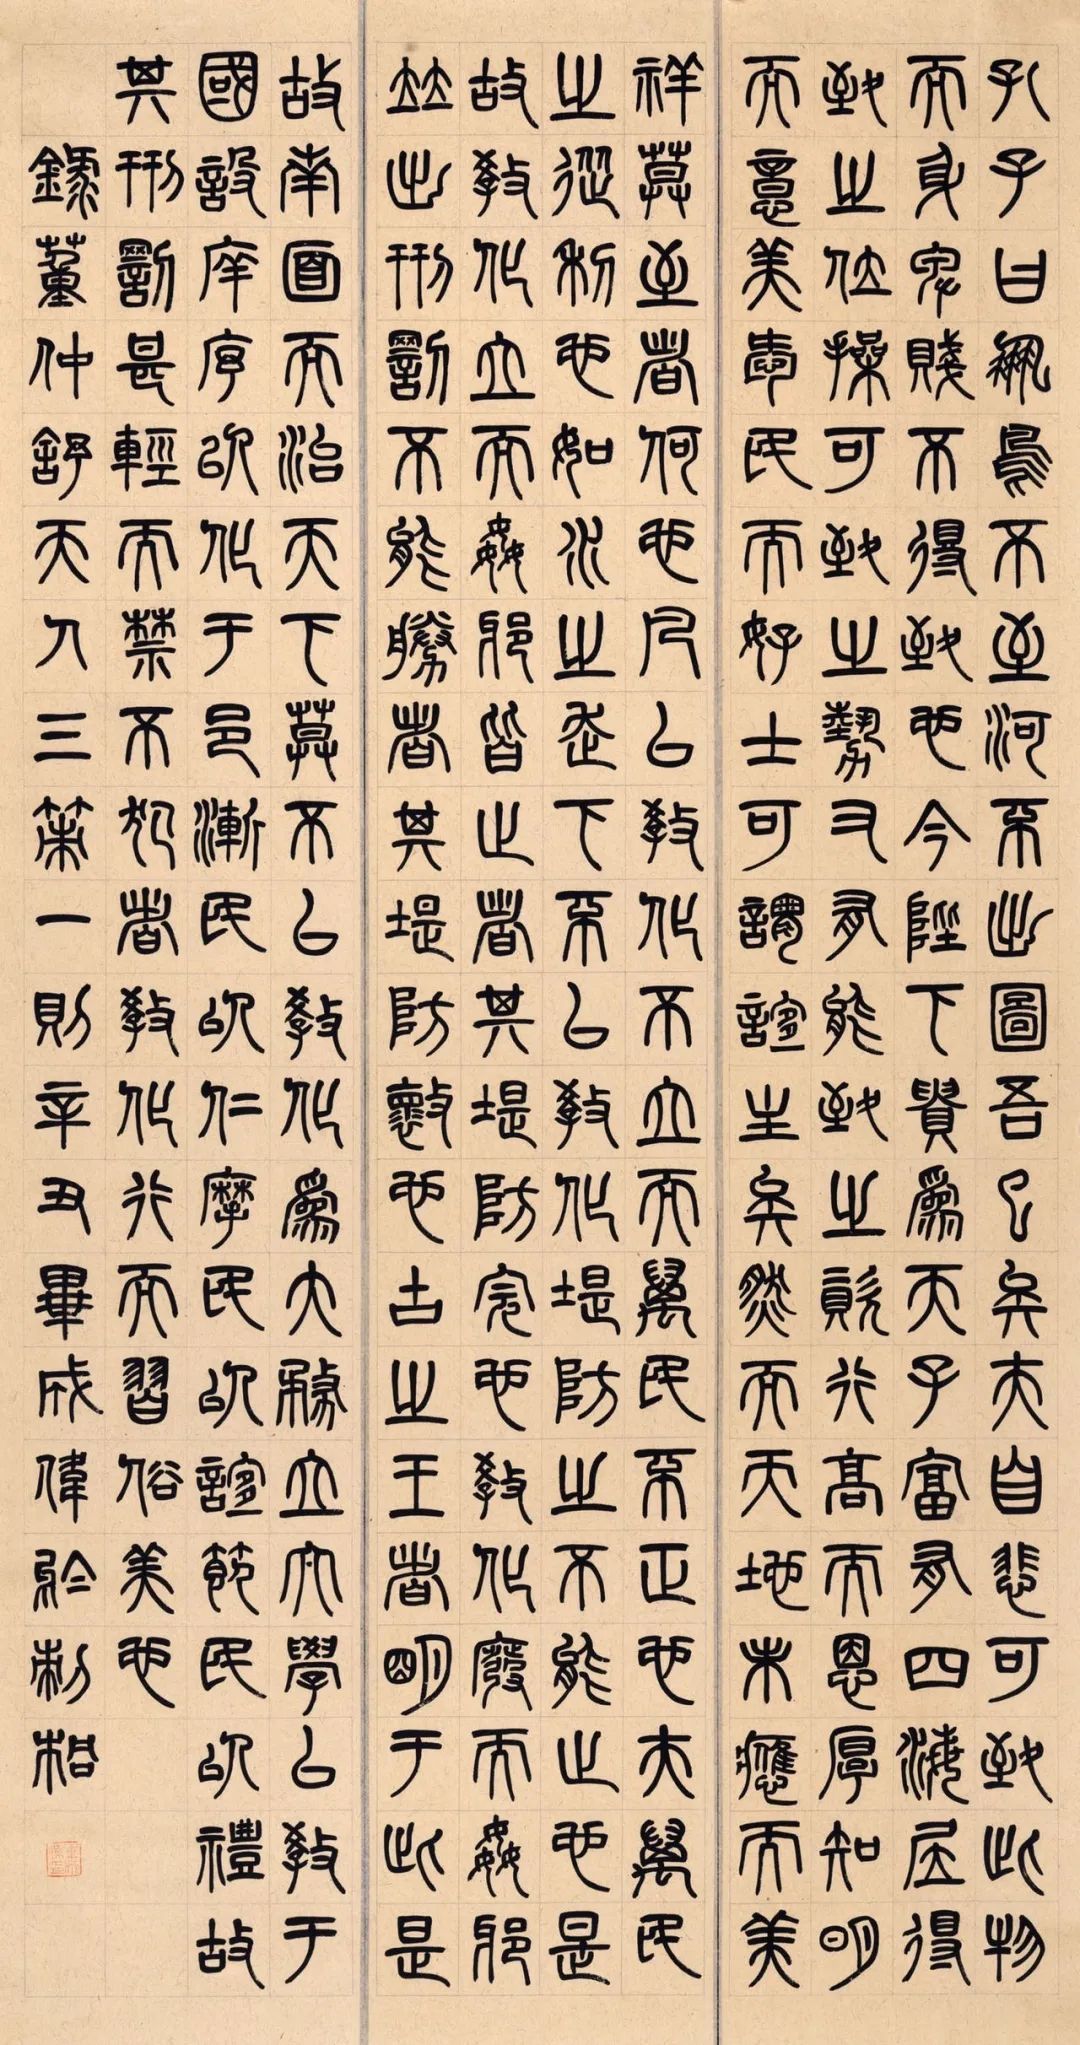 孔子曰鳳鳥不至河不出圖吾已矣夫自悲可致此物
而身卑賤不得致也今陛下貴爲天子富有四海居得
致之位操可致之勢又有能致之資行高而恩厚知明
而意美愛民而好士可謂誼主矣然而天地未應而美
祥莫至者何也凡以教化不立而萬民不正也夫萬民
之從利也如水之走下不以教化堤防之不能止也是
故教化立而姦邪皆止者其堤防完也教化廢而姦邪
並出刑罰不能勝者其堤防壞也古之王者明于此是
故南面而治天下莫不以教化爲大務立大學以教于
國設庠序以化于邑漸民以仁摩民以誼節民以禮故
其刑罰甚輕而禁不犯者教化行而習俗美也
錄董仲舒天人三策一則辛丑畢成偉於